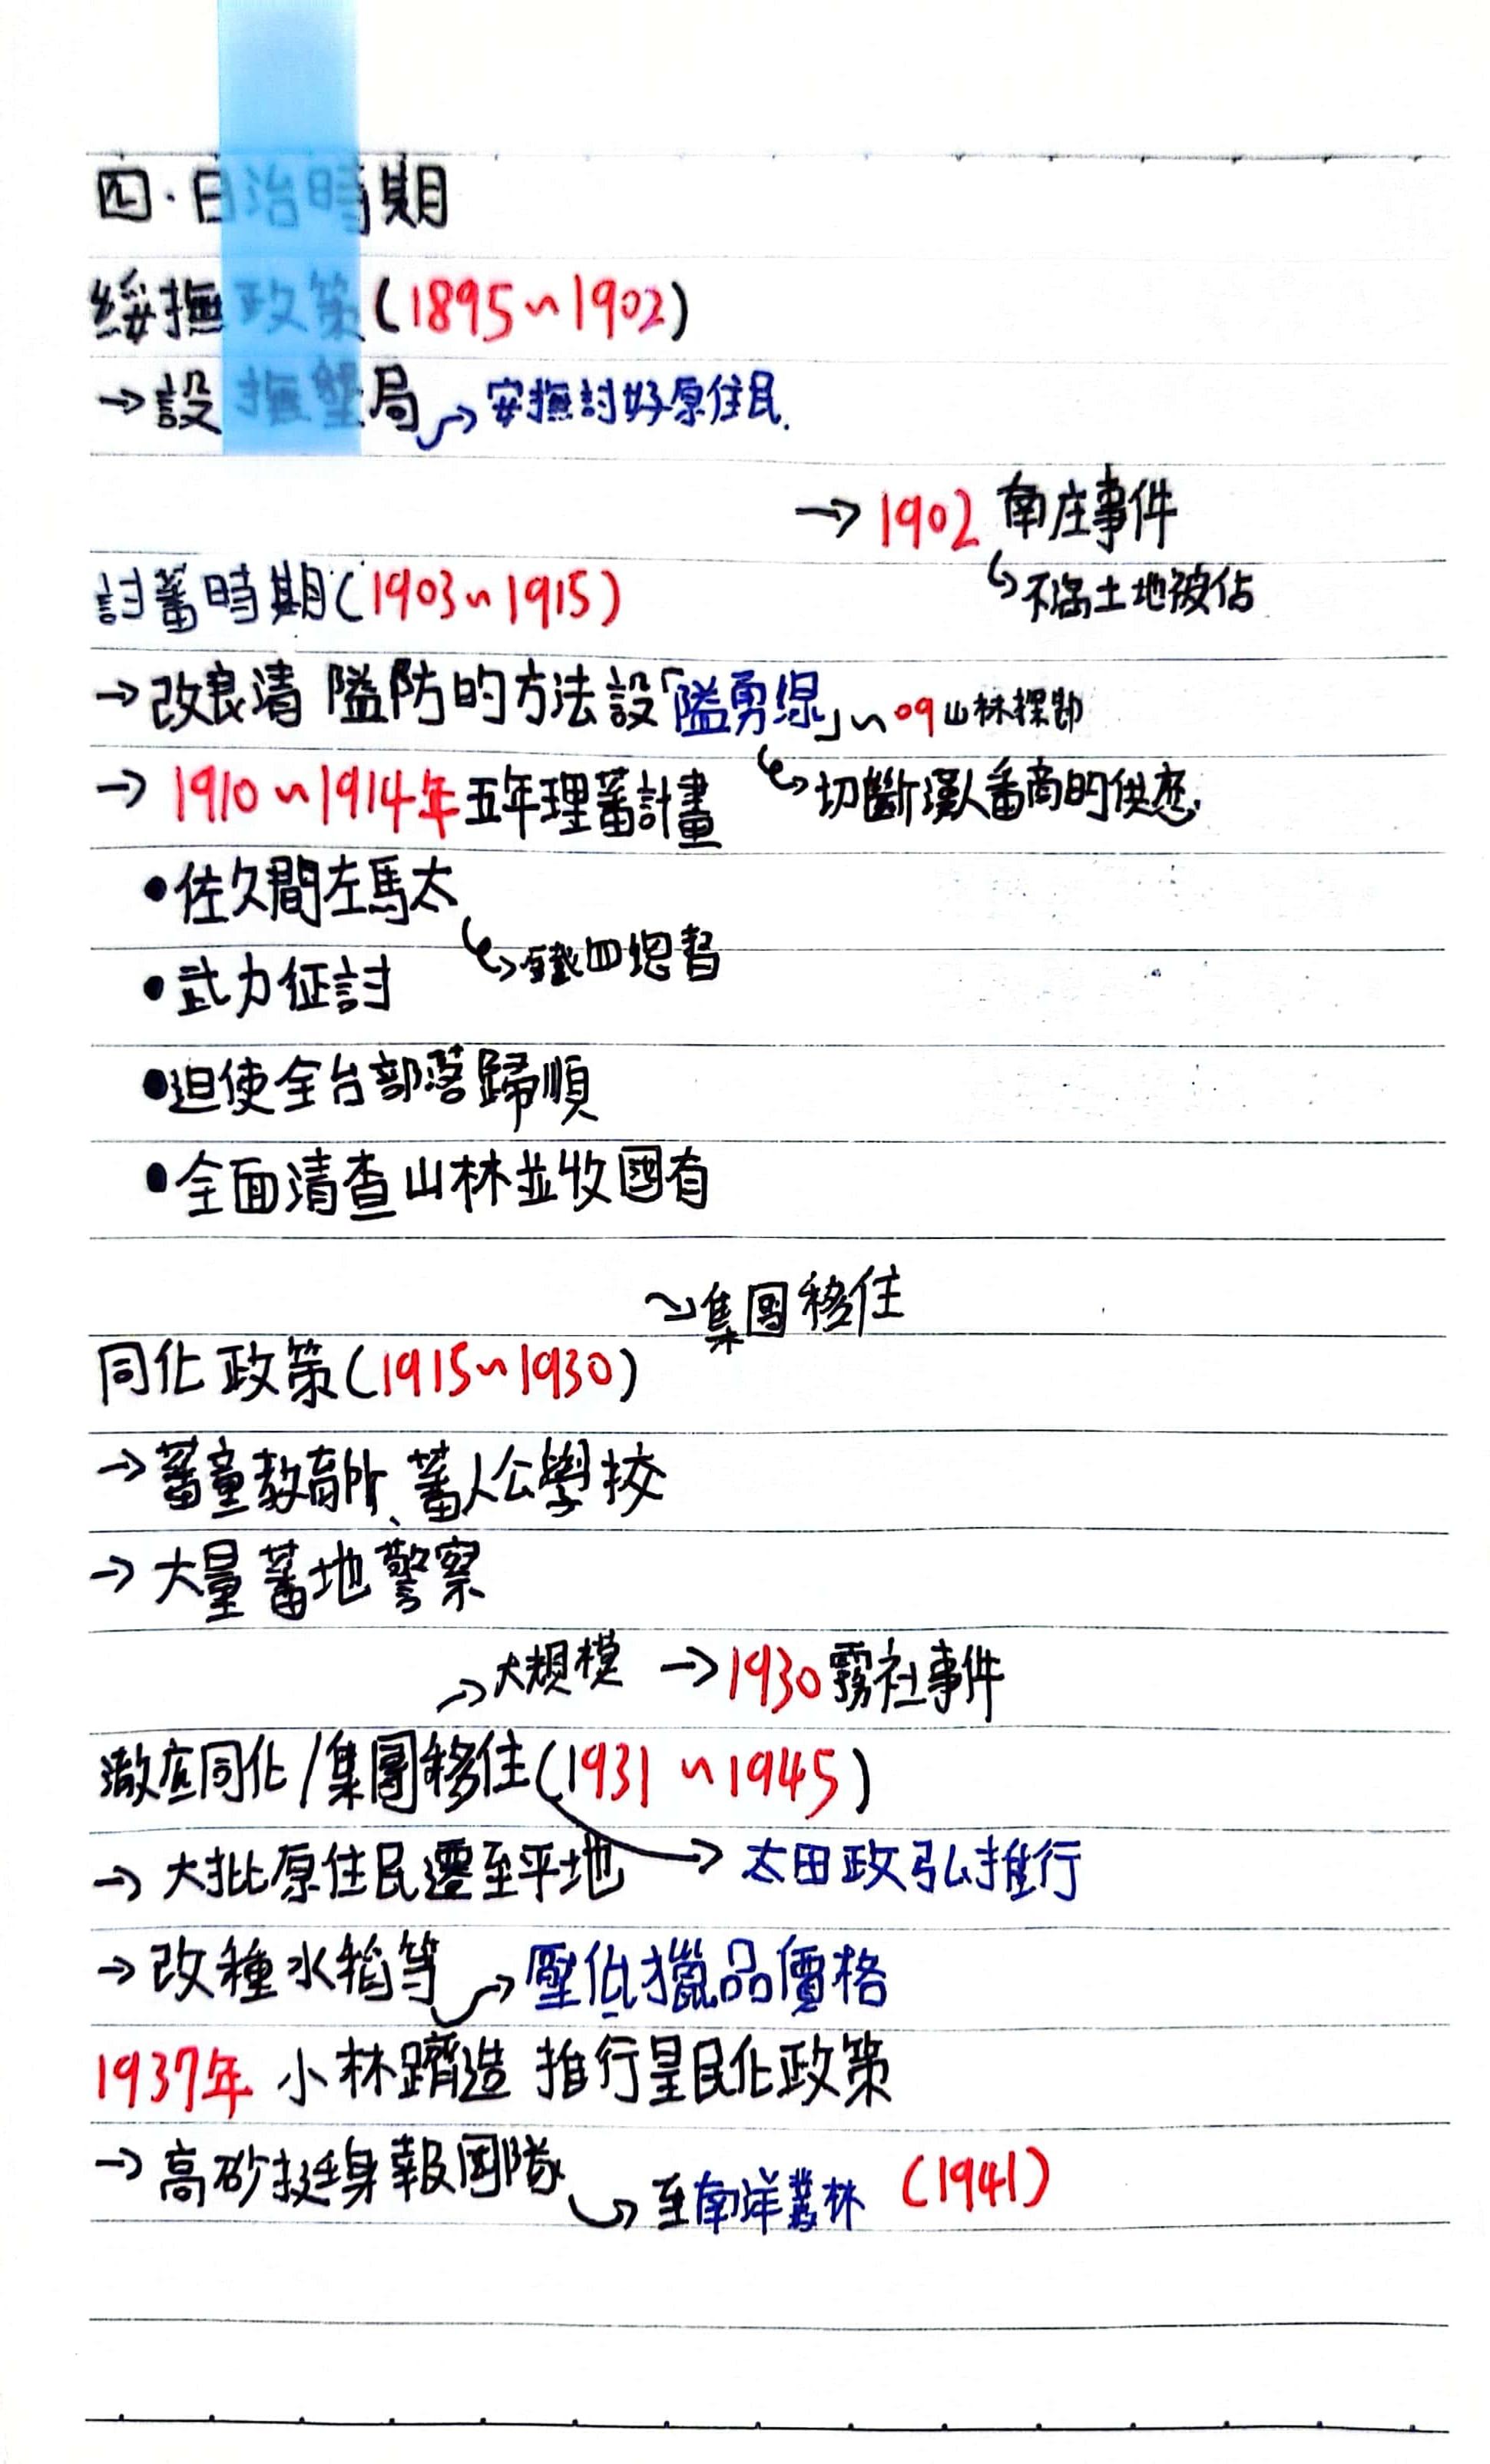 四.日治時期
綏撫政策(1895~1902)
→設撫墾局→安撫討好原住民.
→1902 南庄事件
↳不滿土地被佔
討蕃時期(1903~1915)
→改良清 隘防的方法設「隘勇線」~09山林探勘
→1910~1914年五年理蕃計畫 ↳切斷漢人番商的供應
•佐久間左馬太
↳鐵血總督
•武力征討
•迫使全台部落歸順
•全面清查山林並收國有
→集團移住
同化政策(1915~1930)
→蕃童教育所、蕃人公學校
→大量蕃地警察
→大規模 →1930霧社事件
澈底同化/集團移住(1931~1945)
→大批原住民遷至平地 →太田政弘推行
→改種水稻等→壓低獵品價格
1937年 小林躋造 推行皇民化政策
→高砂挺身報國隊→至南洋叢林 (1941)